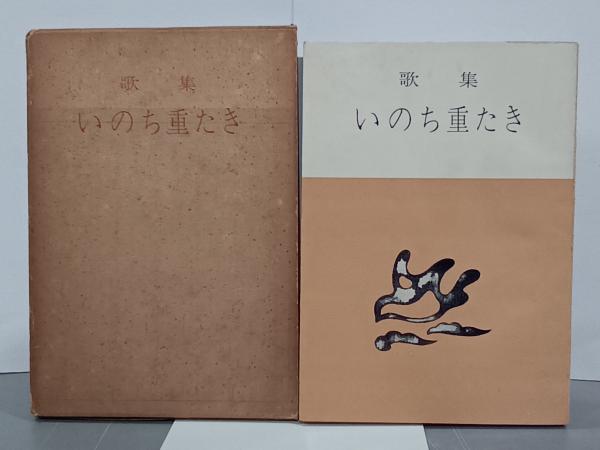 歌集
いのち重たき
歌集
いのち重たき